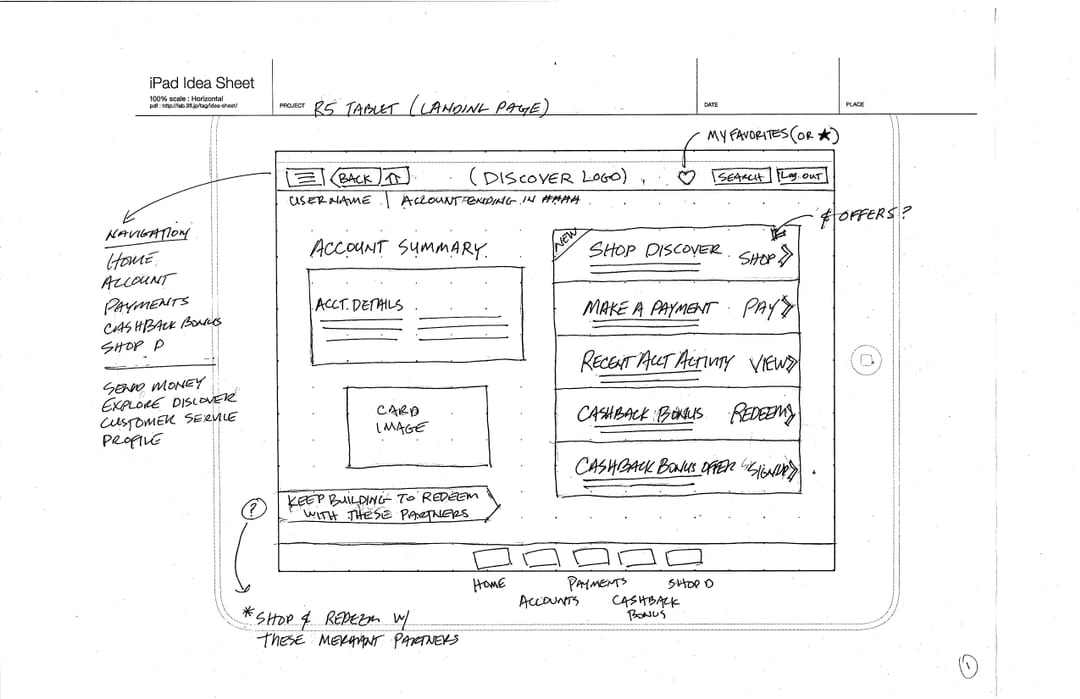 iPad Idea Sheet
100% scale : Horizontal
pdf : http://lab.3fl.jp/tag/idea-sheet/
PROJECT R5 TABLET (LANDING PAGE)
DATE
PLACE
MY FAVORITES (OR ★)
BACK
(DISCOVER LOGO)
SEARCH
LOG OUT
USER NAME | ACCOUNT ENDING IN ####
& OFFERS?
NAVIGATION
HOME
ACCOUNT
PAYMENTS
CASHBACK BONUS
SHOP D
SEND MONEY
EXPLORE DISCOVER
CUSTOMER SERVICE
PROFILE
ACCOUNT SUMMARY
ACCT. DETAILS
CARD
IMAGE
NEW
SHOP DISCOVER SHOP
MAKE A PAYMENT PAY
RECENT ACCT ACTIVITY VIEW
CASHBACK BONUS REDEEM
CASHBACK BONUS OFFER SIGNUP
KEEP BUILDING TO REDEEM
WITH THESE PARTNERS
?
HOME
ACCOUNTS
PAYMENTS
CASHBACK
BONUS
SHOP D
*SHOP & REDEEM W/
THESE MERCHANT PARTNERS
1